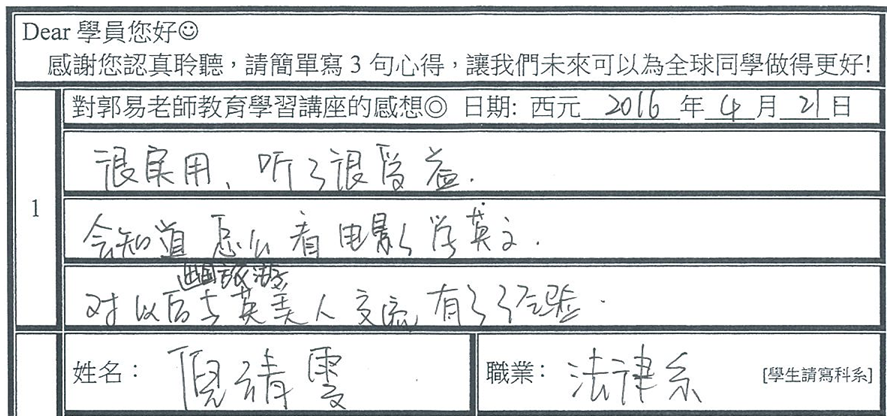 Dear 學員您好☺
感謝您認真聆聽，請簡單寫 3 句心得，讓我們未來可以為全球同學做得更好!
對郭易老師教育學習講座的感想◎ 日期: 西元 2016 年 4 月 21 日
1
很实用、听了很受益.
会知道怎么看电影学英文.
出国旅游
对以后去英美人交流有了了经验.
姓名： 倪靖雯
職業： 法律系 [學生請寫科系]